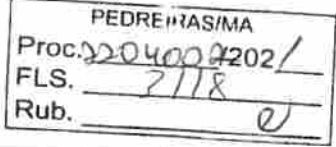 PEDREIRAS/MA
Proc. 2204007202/
FLS. 2118
Rub.